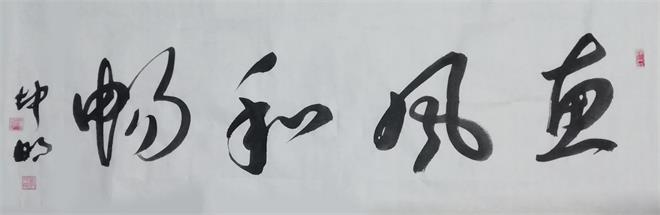 惠风和畅
坤明